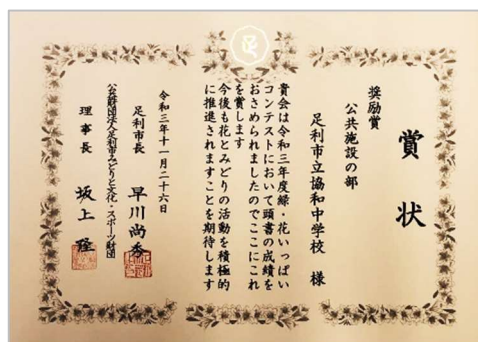 賞状
奨励賞
公共施設の部
足利市立協和中学校 様
貴会は令和三年度緑・花いっぱい
コンテストにおいて頭書の成績を
おさめられましたのでここにこれ
を賞します
今後も花とみどりの活動を積極的
に推進されますことを期待します
令和三年十一月二十六日
足利市長 早川尚秀
公益財団法人足利市みどりと文化・スポーツ財団
理事長 坂上